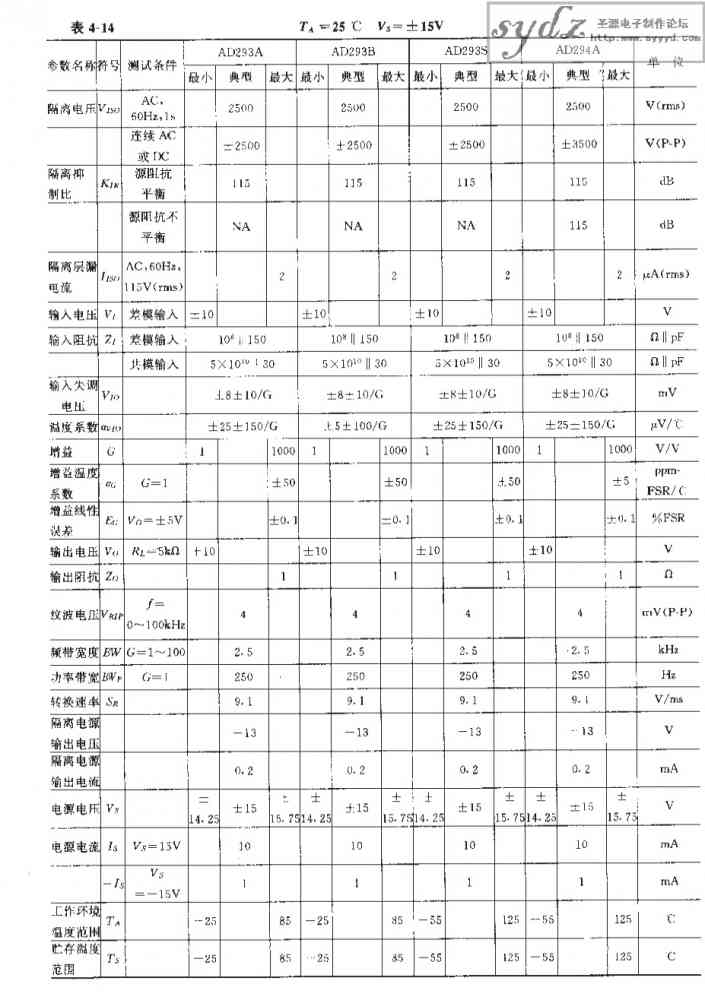 表 4-14 T_A=25 ℃ V_S=±15V
sydz 圣源电子制作论坛
参数名称 符号 测试条件 AD293A AD293B AD293S AD294A 单位
最小 典型 最大 最小 典型 最大 最小 典型 最大 最小 典型 最大
隔离电压 V_ISO AC, 60Hz,1s 2500 2500 2500 2500 V(rms)
连续 AC 或 DC ±2500 ±2500 ±2500 ±3500 V(P-P)
隔离抑制比 源阻抗平衡 115 115 115 115 dB
源阻抗不平衡 NA NA NA 115 dB
隔离层漏电流 I_ISO AC,60Hz, 115V(rms) 2 2 2 2 μA(rms)
输入电压 V_I 差模输入 ±10 ±10 ±10 ±10 V
输入阻抗 Z_I 差模输入 150 10⁸‖150 10⁸‖150 10⁸‖150 Ω‖pF
共模输入 5×10¹⁰ 30 5×10¹⁰‖30 5×10¹⁰‖30 5×10¹⁰‖30 Ω‖pF
输入失调电压 V_IO ±8±10/G ±8±10/G ±8±10/G ±8±10/G mV
温度系数 α_VIO ±25±150/G ±5±100/G ±25±150/G ±25±150/G μV/℃
增益 G 1 1000 1 1000 1 1000 1 1000 V/V
增益温度系数 α_G G=1 ±50 ±50 ±50 ±5 ppm-FSR/C
增益线性误差 E_G V_O=±5V ±0.1 ±0.1 ±0.1 ±0.1 %FSR
输出电压 V_O R_L=5kΩ ±10 ±10 ±10 ±10 V
输出阻抗 Z_O 1 1 1 1 Ω
纹波电压 V_RIP f= 0～100kHz 4 4 4 4 mV(P-P)
频带宽度 BW G=1～100 2.5 2.5 2.5 2.5 kHz
功率带宽 BW_P G=1 250 250 250 250 Hz
转换速率 S_R 9.1 9.1 9.1 9.1 V/ms
隔离电源输出电压 −13 −13 −13 −13 V
隔离电源输出电流 0.2 0.2 0.2 0.2 mA
电源电压 V_S ±14.25 ±15 ±15.75 ±14.25 ±15 ±15.75 ±14.25 ±15 ±15.75 ±14.25 ±15 ±15.75 V
电源电流 I_S V_S=15V 10 10 10 10 mA
−I_S V_S =−15V 1 1 1 1 mA
工作环境温度范围 T_A −25 85 −25 85 −55 125 −55 125 C
贮存温度范围 T_S −25 85 −25 85 −55 125 −55 125 C